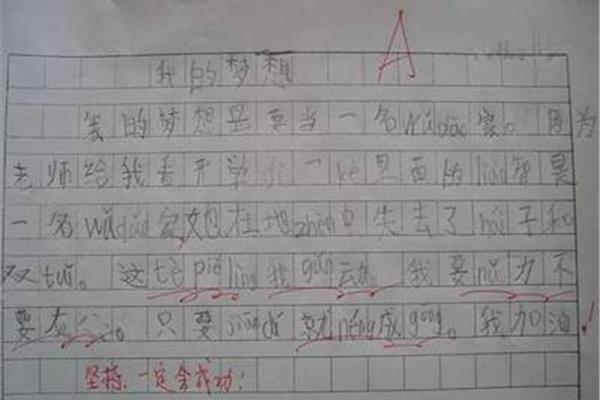 A
我的梦想
我的梦想是要当一名wǔdǎo家。因为
老师给我看开学dì一kè里面的liào智是
一名wǔdǎo家,她在地zhèn中失去了hái子和
双tuǐ。这tè bié lìng我gǎn动。我要nǔ力不
要灰心。只要jiān chí就néng成gōng。我加油!
坚持,一定会成功!